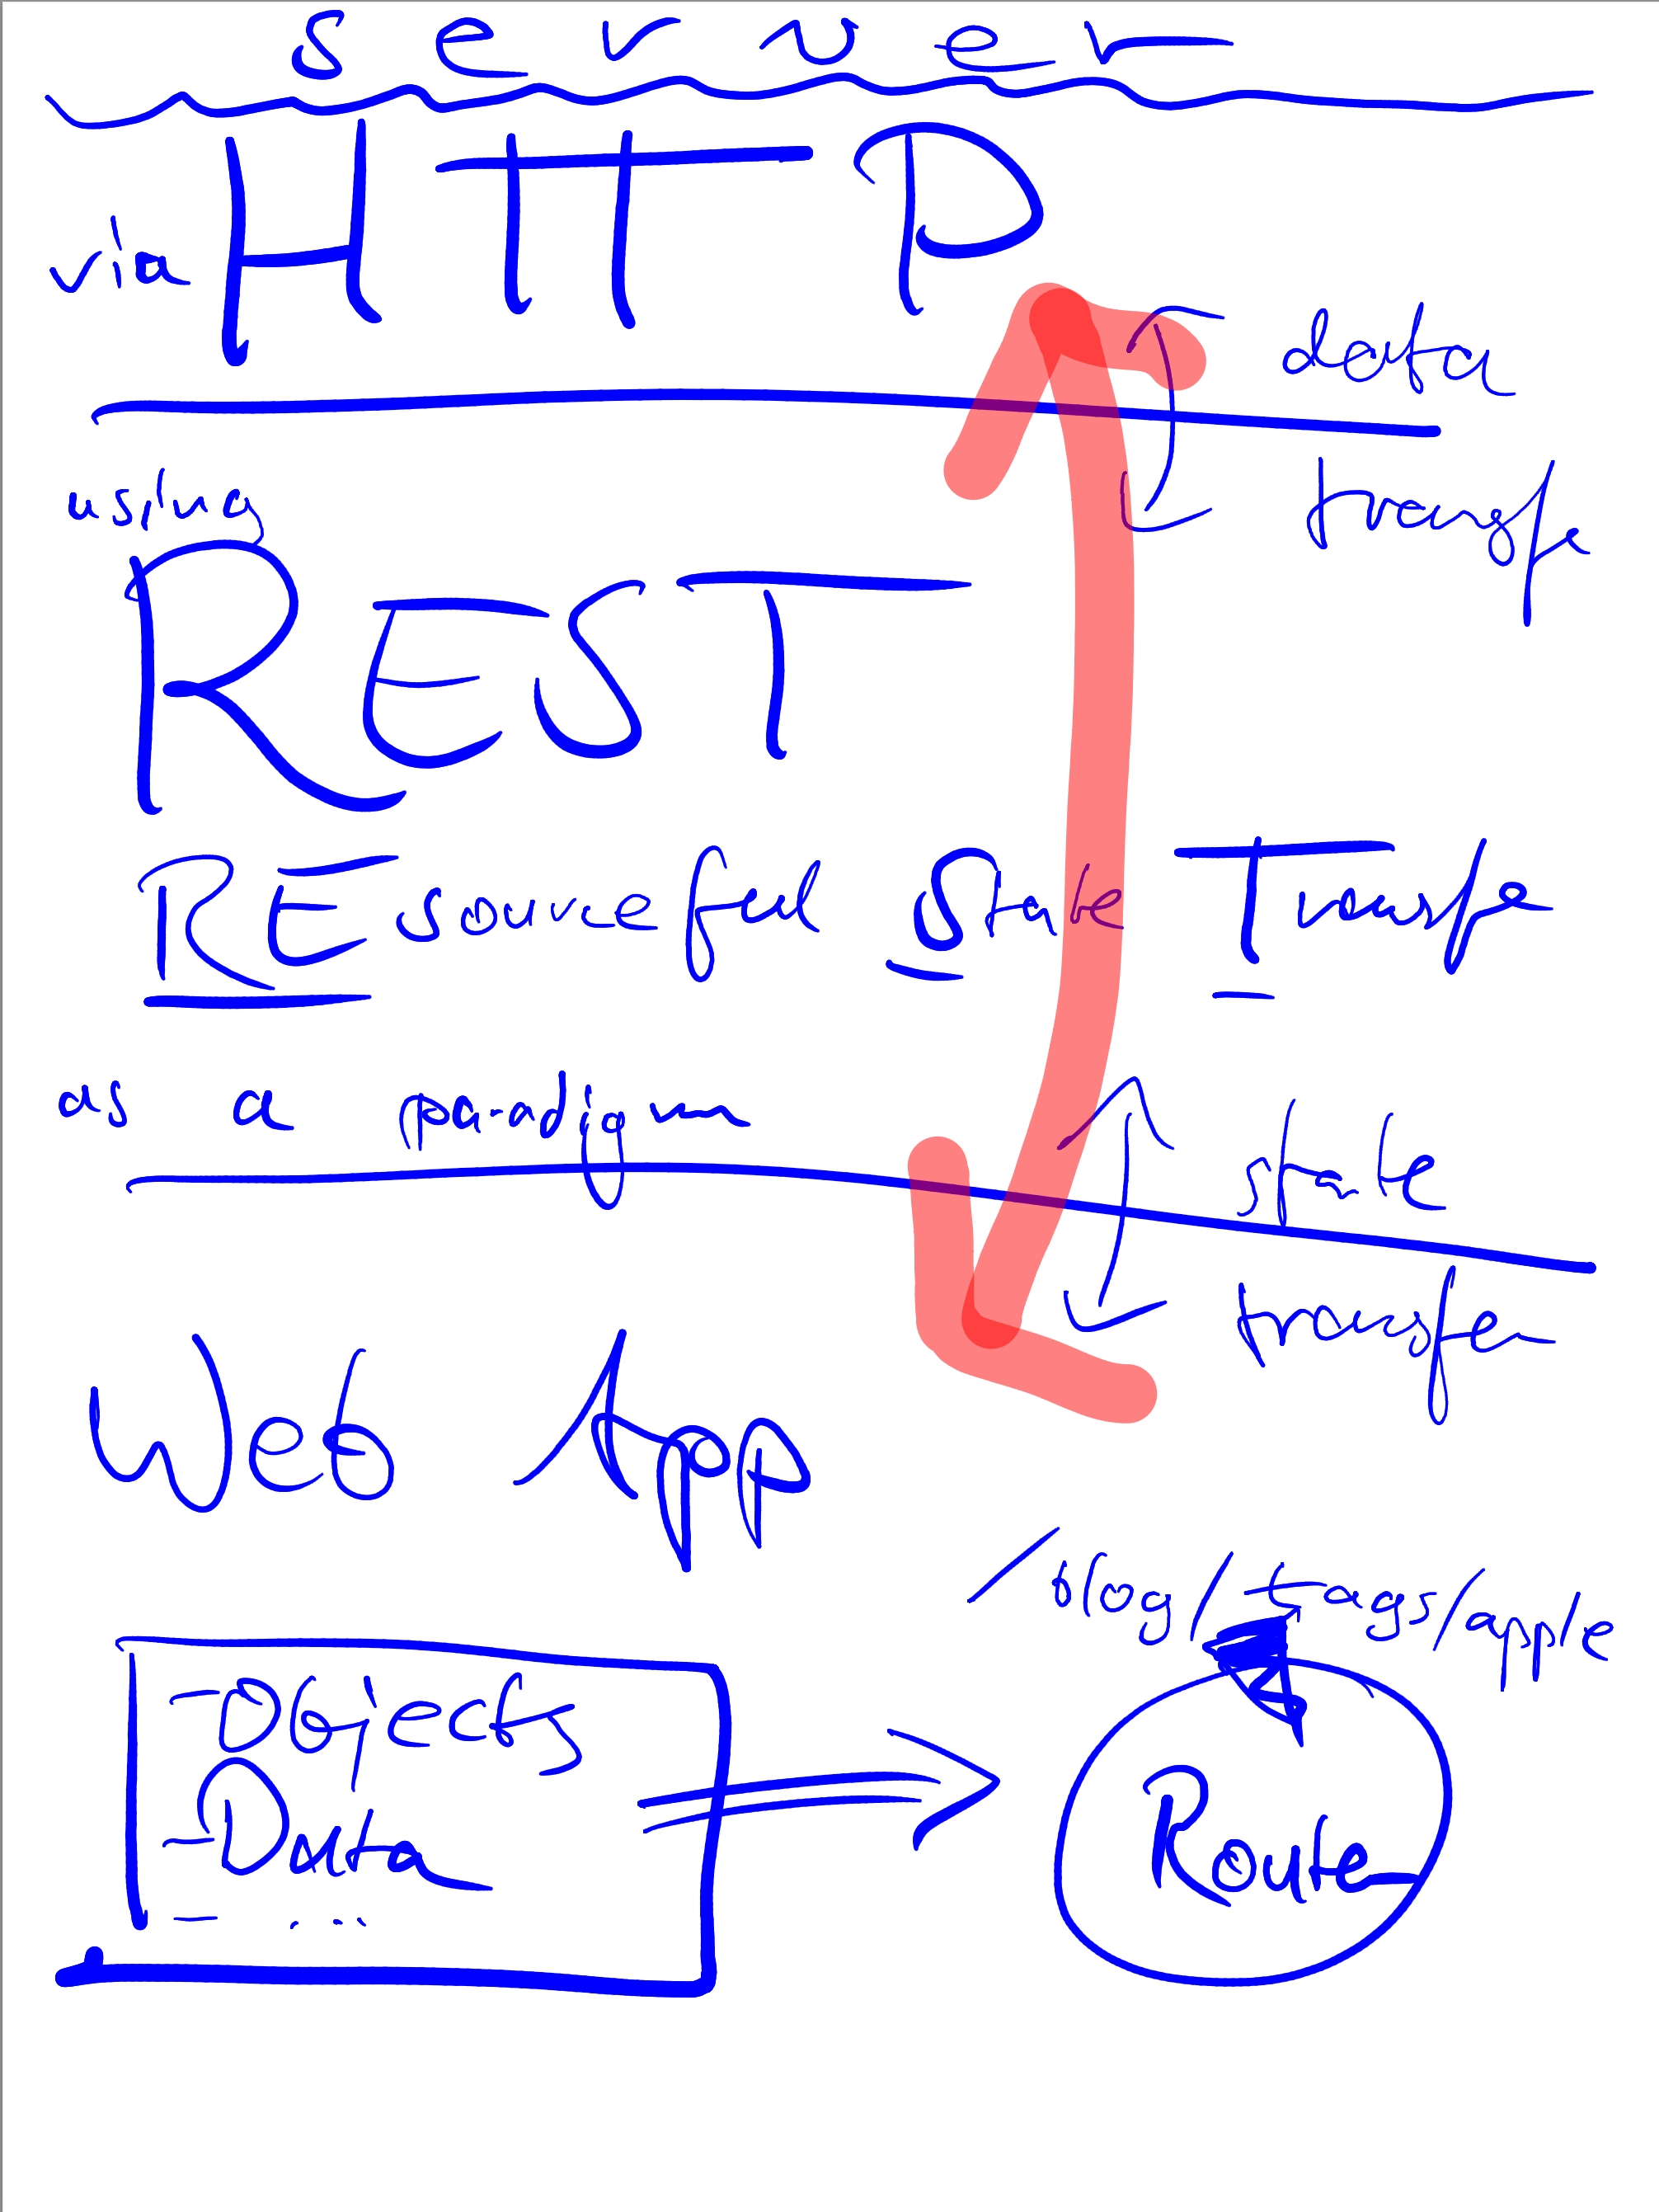 server
via HTTP
data
transfe
using
REST
REsourceful State Transfe
as a paradigm
state
transfer
Web App
/blog/tags/apple
- Objects
- Data
- ...
Route